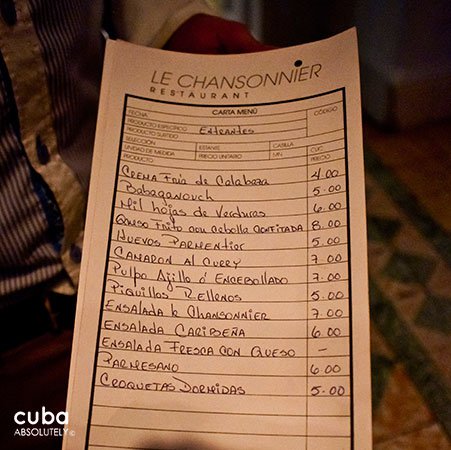 LE CHANSONNIER
RESTAURANT
FECHA: CARTA MENÚ CÓDIGO
PRODUCTO ESPECÍFICO ENTRANTES
PRODUCTO SURTIDO
SELECCIÓN: ESTANTE CASILLA CUC
UNIDAD DE MEDIDA PRECIO UNITARIO MN PRECIO
PRODUCTO
CREMA Fría de Calabaza 4.00
Babaganouch 5.00
Mil hojas de verduras 6.00
Queso Frito con cebolla confitada 8.00
Huevos Parmentier 5.00
Camaron al curry 7.00
Pulpo Ajillo ó Encebollado 7.00
Piquillos Rellenos 5.00
Ensalada le Chansonnier 7.00
Ensalada Caribeña 6.00
Ensalada Fresca con Queso –
Parmesano 6.00
Croquetas Dormidas 5.00
cuba
ABSOLUTELY©